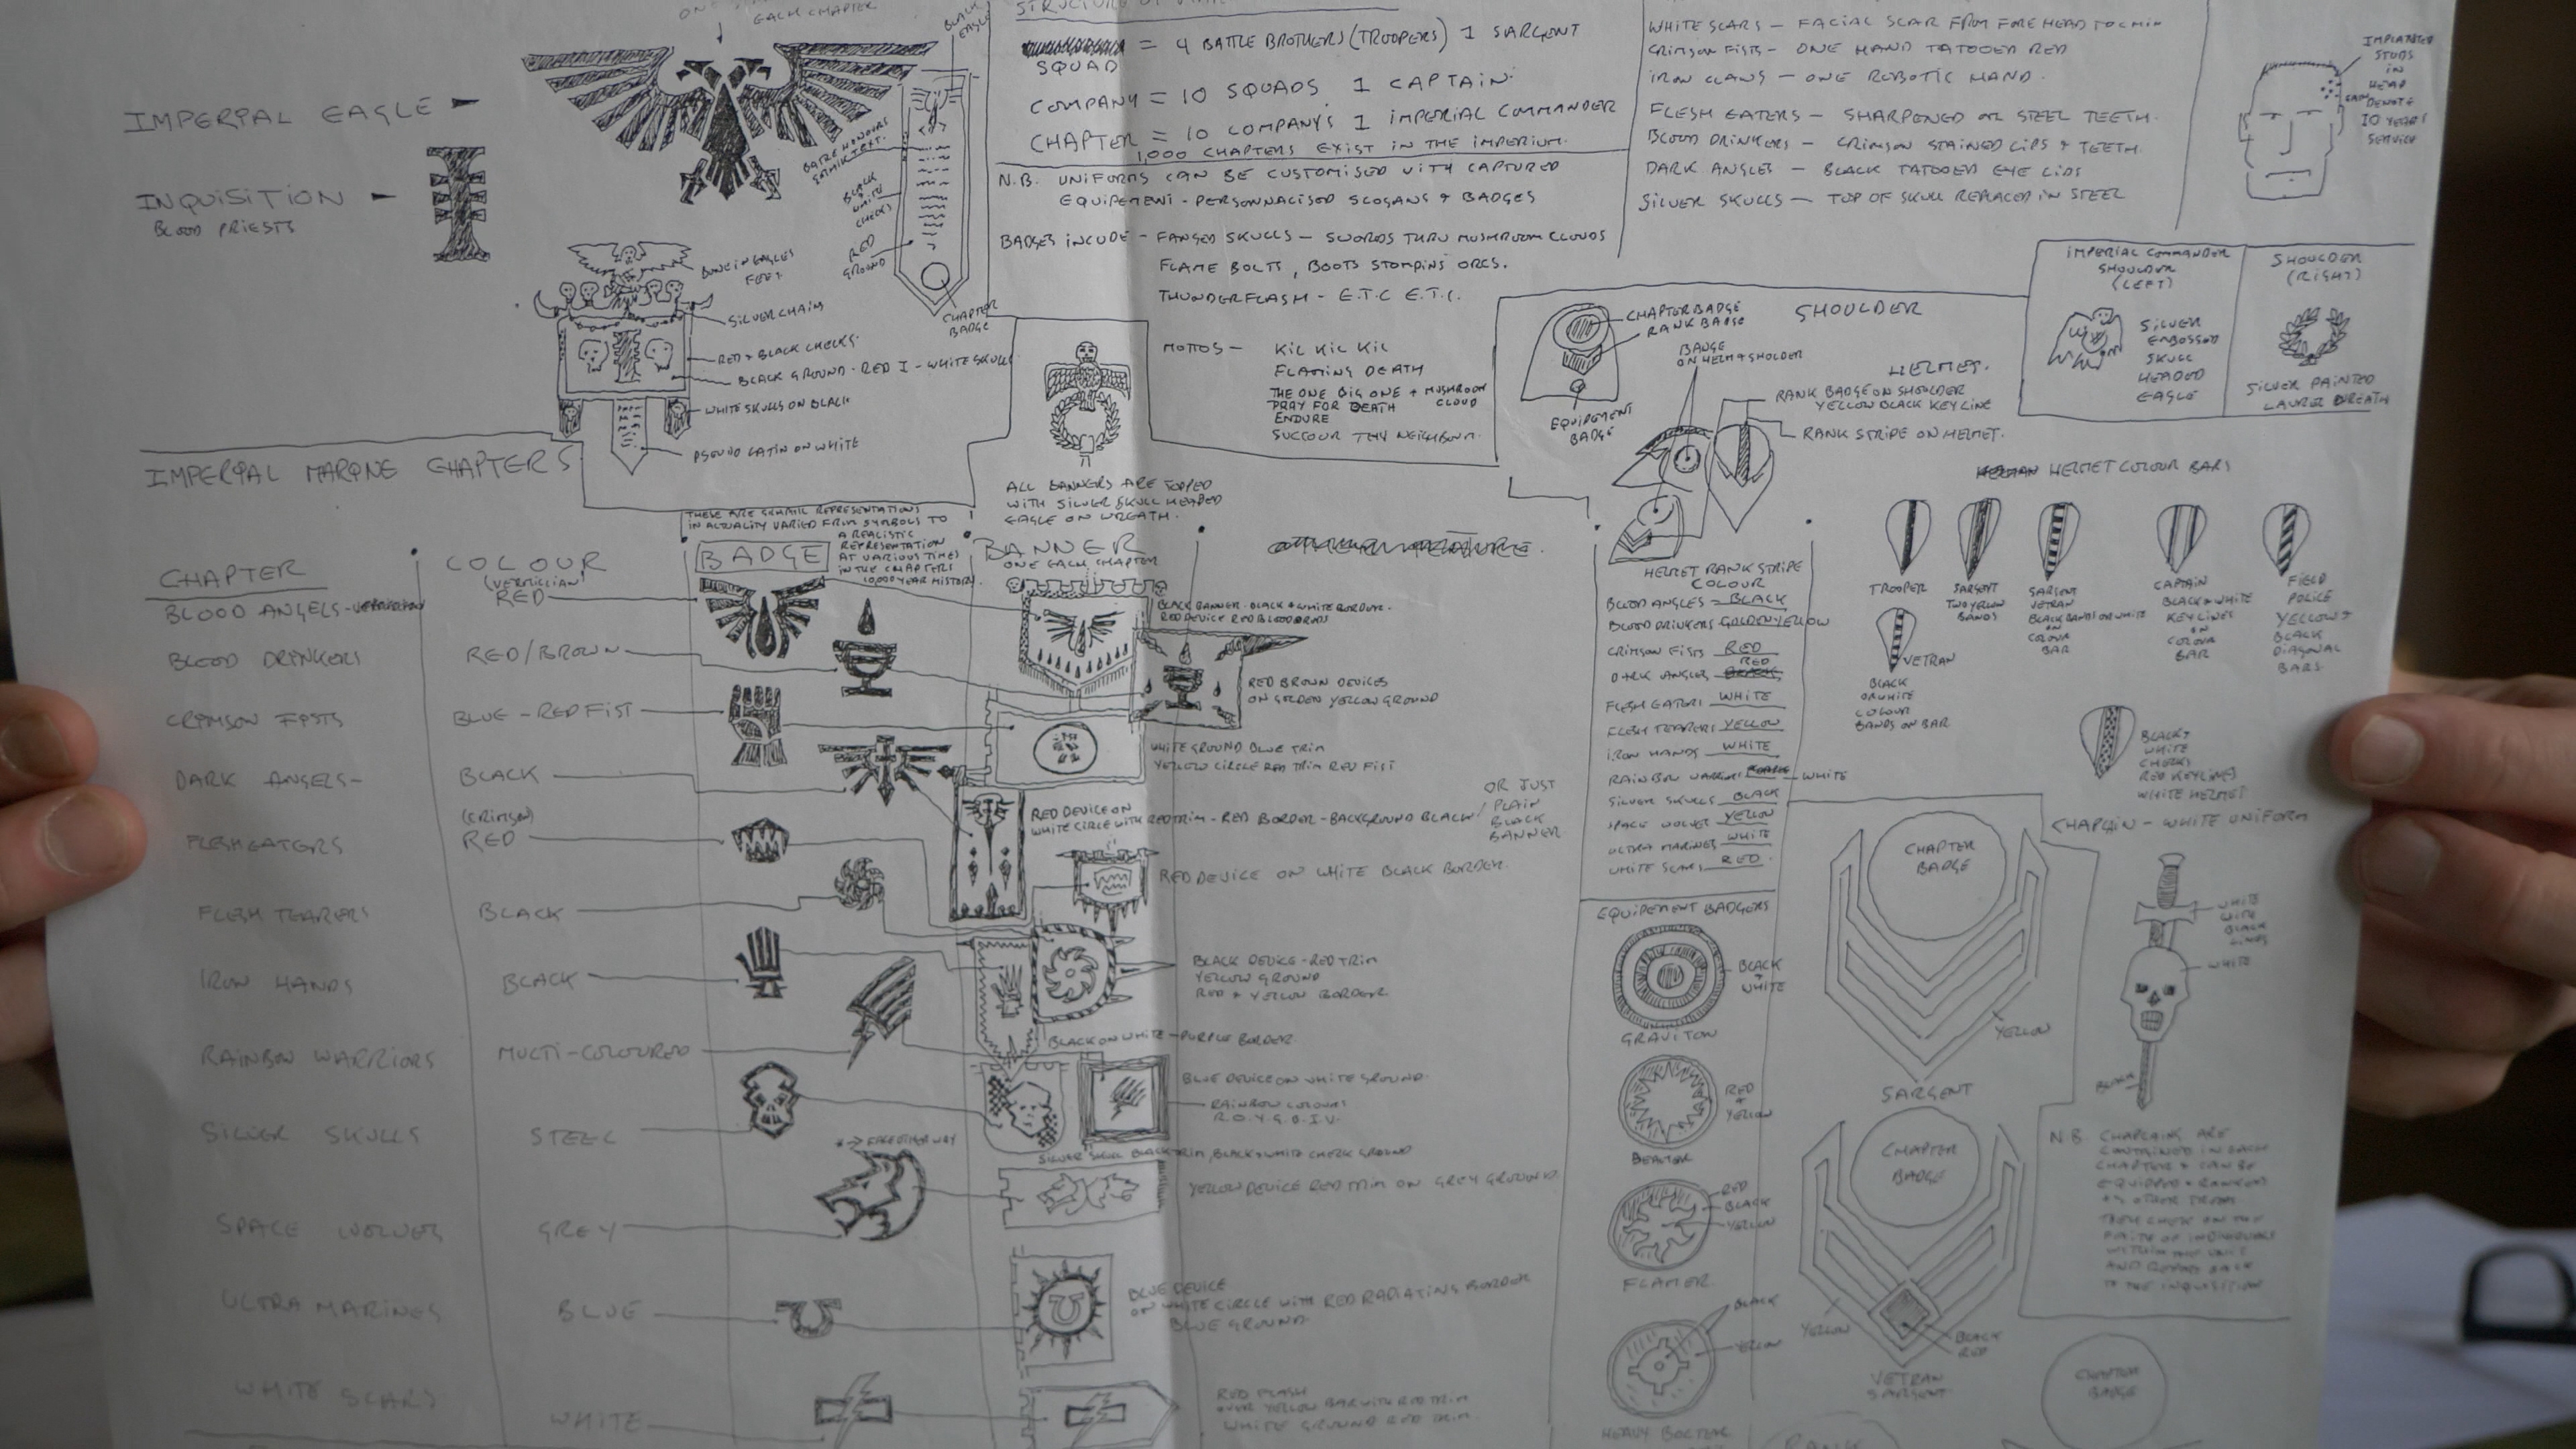 EACH CHAPTER
BLACK
EAGLE
IMPERIAL EAGLE
INQUISITION
BLOOD PRIESTS
BATTLE HONOURS
BLACK
WHITE
CHECKS
RED
GROUND
CHAPTER
BADGE
BONE IN EAGLES
FEET
SILVER CHAIN
RED + BLACK CHECKS
BLACK GROUND - RED I - WHITE SKULLS
WHITE SKULLS ON BLACK
PSEUDO LATIN ON WHITE
= 4 BATTLE BROTHERS (TROOPERS) 1 SARGENT
SQUAD
COMPANY = 10 SQUADS 1 CAPTAIN
CHAPTER = 10 COMPANY'S 1 IMPERIAL COMMANDER
1,000 CHAPTERS EXIST IN THE IMPERIUM.
N.B. UNIFORMS CAN BE CUSTOMISED WITH CAPTURED
EQUIPEMENT - PERSONNALISED SLOGANS + BADGES
BADGES INCLUDE - FANGED SKULLS - SWORDS THRU MUSHROOM CLOUDS
FLAME BOLTS, BOOTS STOMPING ORCS.
THUNDERFLASH - E.T.C E.T.C.
MOTTOS - KIL KIL KIL
FLAMING DEATH
THE ONE BIG ONE + MUSHROOM
CLOUD
PRAY FOR DEATH
ENDURE
SUCCOUR THY NEIGHBOUR.
WHITE SCARS - FACIAL SCAR FROM FOREHEAD TO CHIN
CRIMSON FISTS - ONE HAND TATOOED RED
IRON CLAWS - ONE ROBOTIC HAND.
FLESH EATERS - SHARPENED OR STEEL TEETH.
BLOOD DRINKERS - CRIMSON STAINED LIPS + TEETH.
DARK ANGLES - BLACK TATOOED EYE LIDS
SILVER SKULLS - TOP OF SKULL REPLACED IN STEEL
IMPLANTED
STUDS
IN
HEAD
EACH DENOTE
10 YEARS
SERVICE
IMPERIAL COMMANDER
SHOULDER
(LEFT)
SILVER
EMBOSSED
SKULL
HEADED
EAGLE
SHOULDER
(RIGHT)
SILVER PAINTED
LAUREL WREATH
SHOULDER
CHAPTER BADGE
RANK BADGE
EQUIPMENT
BADGE
BADGE
ON HELM + SHOLDER
HELMET.
RANK BADGE ON SHOULDER
YELLOW BLACK KEYLINE
RANK STRIPE ON HELMET.
HELMET COLOUR BARS
TROOPER
SARGENT
TWO YELLOW
BANDS
SARGENT
VETRAN
BLACK BANDS OR WHITE
ON
COLOUR
BAR
CAPTAIN
BLACK + WHITE
KEYLINES
ON
COLOUR
BAR
FIELD
POLICE
YELLOW +
BLACK
DIAGONAL
BARS
VETRAN
BLACK
OR WHITE
COLOUR
BANDS ON BAR
BLACK +
WHITE
CHECKS
RED KEYLINES
WHITE HELMET
CHAPLAIN - WHITE UNIFORM
IMPERIAL MARINE CHAPTERS
ALL BANNERS ARE TOPPED
WITH SILVER SKULL HEADED
EAGLE ON WREATH.
THESE ARE GRAPHIC REPRESENTATIONS
IN ACTUALITY VARIED FROM SYMBOLS TO
A REALISTIC
REPRESENTATION
AT VARIOUS TIMES
IN THE CHAPTERS
10,000 YEAR HISTORY.
CHAPTER
COLOUR
BADGE
BANNER
ONE EACH CHAPTER
BLOOD ANGELS
(VERMILLIAN)
RED
BLACK BANNER - BLACK + WHITE BORDER -
RED DEVICE RED BLOOD DROPS
BLOOD DRINKERS
RED/BROWN
RED BROWN DEVICES
ON GOLDEN YELLOW GROUND
CRIMSON FISTS
BLUE - RED FIST
WHITE GROUND BLUE TRIM
YELLOW CIRCLE RED TRIM RED FIST
DARK ANGELS -
BLACK
RED DEVICE ON
WHITE CIRCLE WITH RED TRIM - RED BORDER - BACKGROUND BLACK
OR JUST
PLAIN
BLACK
BANNER
FLESH EATERS
(CRIMSON)
RED
RED DEVICE ON WHITE BLACK BORDER.
FLESH TEARERS
BLACK
BLACK DEVICE - RED TRIM
YELLOW GROUND
RED + YELLOW BORDER
IRON HANDS
BLACK
BLACK ON WHITE - PURPLE BORDER.
RAINBOW WARRIORS
MULTI-COLOURED
BLUE DEVICE ON WHITE GROUND.
RAINBOW COLOURS
R.O.Y.G.B.I.V.
SILVER SKULLS
STEEL
SILVER SKULL BLACK TRIM, BLACK + WHITE CHECK GROUND
FACE OTHER WAY
SPACE WOLVES
GREY
YELLOW DEVICE RED TRIM ON GREY GROUND
ULTRA MARINES
BLUE
BLUE DEVICE
ON WHITE CIRCLE WITH RED RADIATING BORDER
BLUE GROUND.
WHITE SCARS
WHITE
RED FLASH
OVER YELLOW BAR WITH RED TRIM
WHITE GROUND RED TRIM.
HELMET RANK STRIPE
COLOUR
BLOOD ANGLES = BLACK
BLOOD DRINKERS GOLDEN YELLOW
CRIMSON FISTS RED
DARK ANGLES RED
FLESH EATERS WHITE
FLESH TEARERS YELLOW
IRON HANDS WHITE
RAINBOW WARRIORS WHITE
SILVER SKULLS BLACK
SPACE WOLVES YELLOW
ULTRA MARINES WHITE
WHITE SCARS RED
EQUIPEMENT BADGERS
BLACK
+
WHITE
GRAVITON
RED
+
YELLOW
BEAMER
RED
BLACK
YELLOW
FLAMER
BLACK
YELLOW
HEAVY BOLTER
CHAPTER
BADGE
YELLOW
SARGENT
CHAPTER
BADGE
YELLOW
BLACK
RED
VETRAN
SARGENT
CHAPTER
BADGE
RANK
WHITE
WITH
BLACK
LINES
WHITE
BLACK
N.B. CHAPLAINS ARE
CONTAINED IN EACH
CHAPTER + CAN BE
EQUIPPED + RANKED
AS OTHER TROOPS
THEY CHECK ON THE
FAITH OF INDIVIDUALS
WITHIN THE UNIT
AND REPORT BACK
TO THE INQUISITION